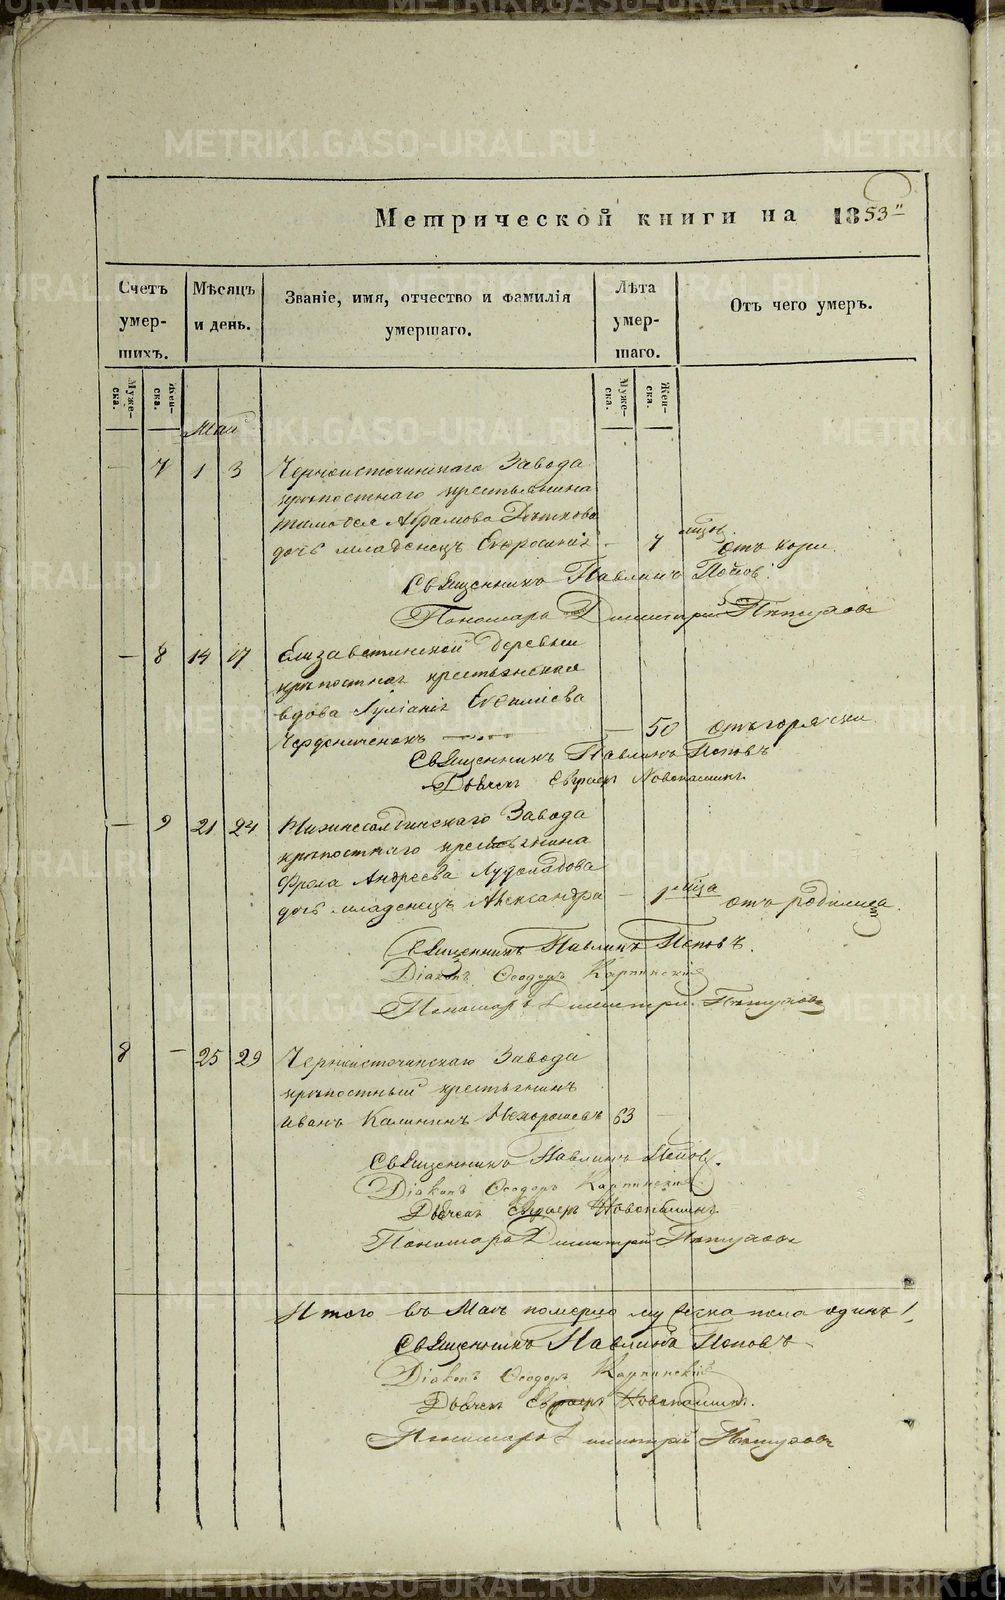 Метрической книги на 1853
Счетъ умер-шихъ.
Мѣсяцъ и день.
Званіе, имя, отчество и фамилія умершаго.
Лѣта умер-шаго.
Отъ чего умеръ.
Муже-ска.
Жен-ска.
Муже-ска.
Жен-ска.
Май
— 7 1 3 Черноисточинскаго Завода
крѣпостнаго крестьянина
Тимофея Абрамова
дочь младенецъ Евфросинія — 7 отъ кори.
Священникъ Павлинъ Поповъ.
Пономарь Димитрій Пѣтуховъ
— 8 14 17 Елизаветинской деревни
крѣпостная крестьянская
вдова Іуліанія
— 50 отъ горячки
Священникъ Павлинъ Поповъ
Дьячекъ Новопашинъ
— 9 21 24 Нижнесалдинскаго Завода
крѣпостнаго крестьянина
Фрола Андреева
дочь младенецъ Александра — 1 отъ родимца
Священникъ Павлинъ Поповъ.
Діаконъ Ѳеодоръ Карпинскій
Пономарь Димитрій Пѣтуховъ
8 — 25 29 Черноисточинскаго Завода
крѣпостный крестьянинъ
Иванъ Калининъ Нехорошевъ 63 —
Священникъ Павлинъ Поповъ.
Діаконъ Ѳеодоръ Карпинскій
Дьячекъ Новопашинъ
Пономарь Димитрій Пѣтуховъ
Итого въ Маѣ померло мужеска пола одинъ 1,
Священникъ Павлинъ Поповъ
Діаконъ Ѳеодоръ Карпинскій
Дьячекъ Новопашинъ.
Пономарь Димитрій Пѣтуховъ
METRIKI.GASO-URAL.RU